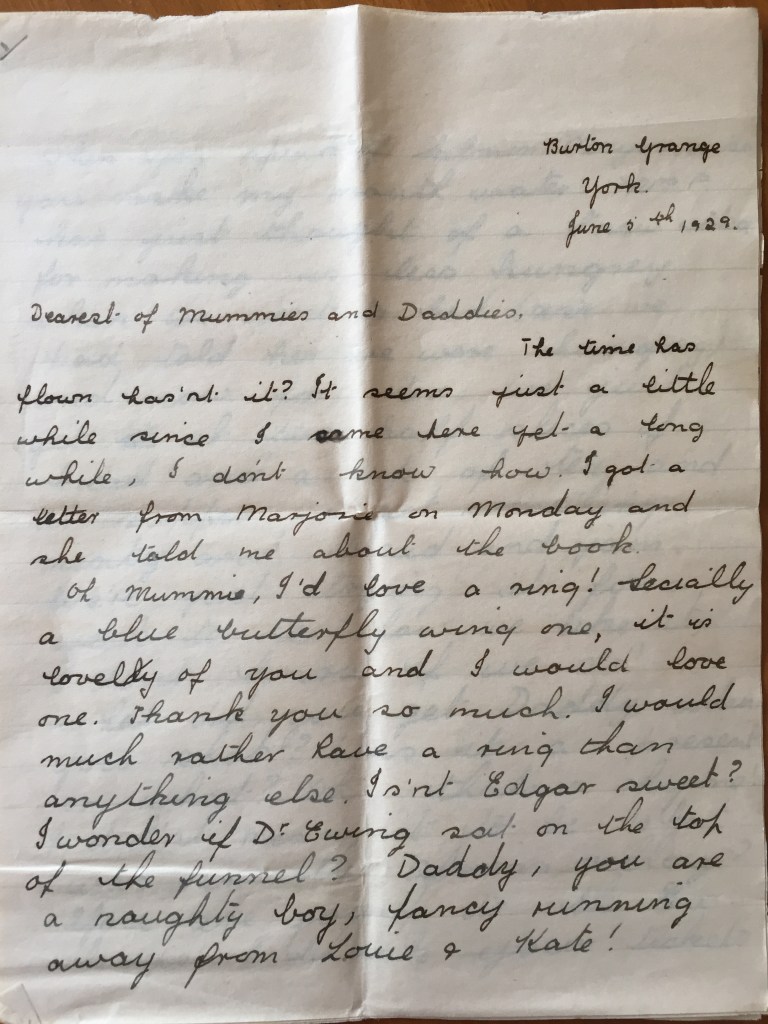 Burton Grange
York.
June 5th 1929.
Dearest of Mummies and Daddies,
The time has
flown has'nt it? It seems just a little
while since I came here yet a long
while, I dont know how. I got a
letter from Marjorie on Monday and
she told me about the book.
Oh Mummie, I'd love a ring! Specially
a blue butterfly wing one, it is
lovely of you and I would love
one. Thank you so much. I would
much rather have a ring than
anything else. Is'nt Edgar sweet?
I wonder if Dr Ewing sat on the top
of the funnel? Daddy, you are
a naughty boy, fancy running
away from Louie & Kate!